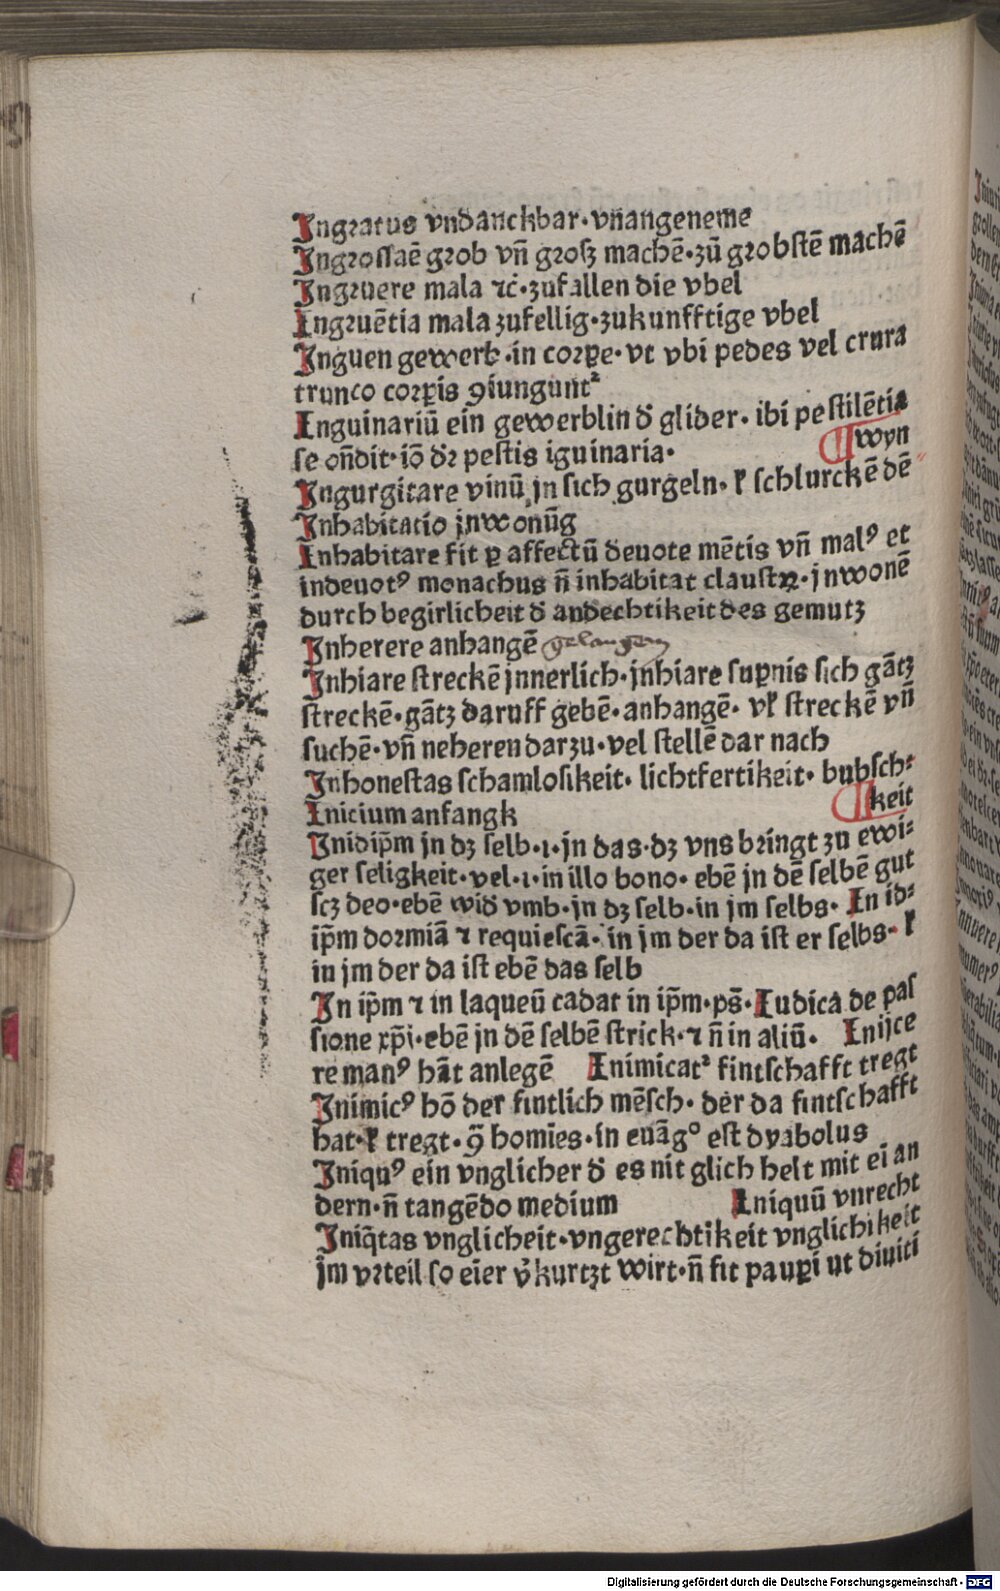 Ingratus vndanckbar·vnangeneme
Ingrossaē grob vñ grosz machē·zū grobstē machē
Ingruere mala ⁊ċ·zufallen die vbel
Ingruētia mala zufellig·zukunfftige vbel
Inguen gewerb·in corꝑe·vt vbi pedes vel crura
trunco corꝑis ꝯiungunt᷑
Inguinariū ein gewerblin đ glider·ibi pestilētia
se oñdit·iō dꝛ pestis iguinaria· ¶ wyn
Ingurgitare vinū jn sich gurgeln·ꝟ schlurckē dē
Inhabitatio jnwonūg
Inhabitare fit ꝑ affectū deuote mētis vñ malꝰ et
indeuotꝰ monachus ñ inhabitat claustꝝ·jnwonē
durch begirlicheit đ andechtikeit des gemutz
Inherere anhangē gelangen
Inhiare streckē jnnerlich·jnhiare suꝑnis sich gātz
streckē·gātz daruff gebē·anhangē·vꝟ streckē vñ
suchē·vñ neheren darzu·vel stellē dar nach
Inhonestas schamlosikeit·lichtfertikeit·bubsch⸗
Inicium anfangk ¶ keit
Inidip̄m jn dz selb·ı·jn das·dz vns bringt zu ewi⸗
ger seligkeit·vel·ı·in illo bono·ebē jn dē selbē gut
scz deo·ebē wid vmb·jn dz selb·in jm selbs· In id⸗
ip̄m dormiā ⁊ requiescā·in jm der da ist er selbs·ꝟ
in jm der da ist ebē das selb
In ip̄m ⁊ in laqueū cadat in ip̄m·ps̄·Iudica de pas
sione xp̄i·ebē jn dē selbē strick·⁊ ñ in aliū· Inijce
re manꝰ hāt anlegē Inimicat᷑ fintschafft tregt
Inimicꝰ hō der fintlich mēsch·der da fintschafft
hat·ꝟ tregt·ꝯ̄ homīes·in euāg° est dyabolus
Iniquꝰ ein vnglicher đ es nit glich helt mit ei an
dern·ñ tangēdo medium Iniquū vnrecht
Iniq̄tas vnglicheit·vngerechtikeit vnglichikeit
jm vrteil so eīer v̊kurtzt wirt·ñ fit pauꝑi ut diuiti
Digitalisierung gefördert durch die Deutsche Forschungsgemeinschaft - DFG